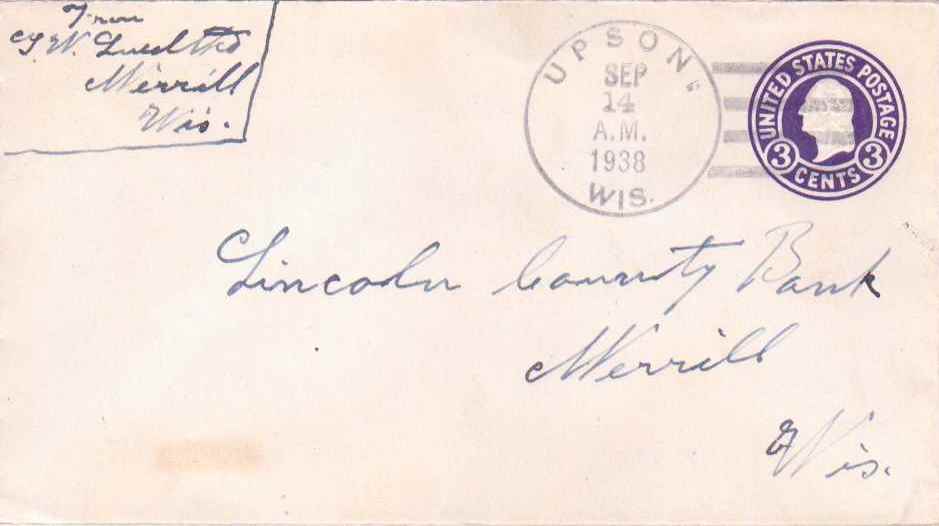 From
W. Luedtke
Merrill
Wis.
UPSON
SEP
14
A.M.
1938
WIS.
UNITED STATES POSTAGE
3 CENTS 3
Lincoln County Bank
Merrill
Wis.